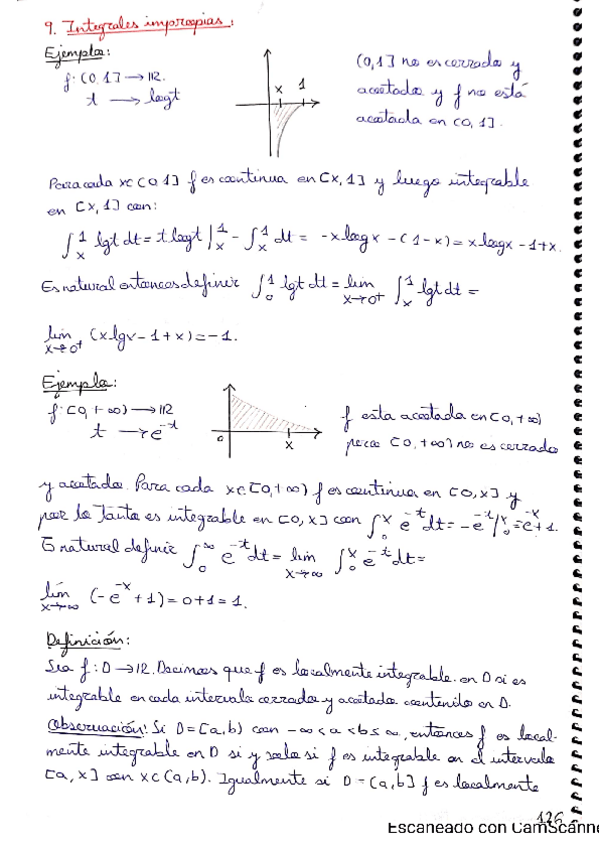 9. Integrales impropias:
Ejemplo:
f: (0,1] → IR.
t → logt
x 1
(0,1] no es cerrado y
acotado y f no está
acotada en (0,1].
Para cada x∈(0,1] f es continua en [x,1] y luego integrable
en [x,1] con:
∫_x^1 lgt dt = t logt |_x^1 - ∫_x^1 1 dt = -x log x - (1-x) = x logx - 1+x.
Es natural entonces definir ∫_0^1 lgt dt = lim_{x→0+} ∫_x^1 lgt dt =
lim_{x→0+} (x lgx - 1 + x) = -1.
Ejemplo:
f: [0,+∞) → IR
t → e^{-t}
0 x
f esta acotada en [0,+∞)
pero [0,+∞) no es cerrado
y acotado. Para cada x∈[0,+∞) f es continua en [0,x] y
por lo tanto es integrable en [0,x] con ∫_0^x e^{-t} dt = -e^{-t}|_0^x = -e^{-x}+1.
Es natural definir ∫_0^∞ e^{-t} dt = lim_{x→∞} ∫_0^x e^{-t} dt =
lim_{x→∞} (-e^{-x} + 1) = 0+1 = 1.
Definición:
Sea f: D → IR. Decimos que f es localmente integrable en D si es
integrable en cada intervalo cerrado y acotado contenido en D.
Observación: Si D = [a,b) con -∞ < a < b ≤ ∞, entonces f es local-
mente integrable en D si y solo si f es integrable en el intervalo
[a,x] con x∈(a,b). Igualmente si D = (a,b] f es localmente
126
Escaneado con CamScanne